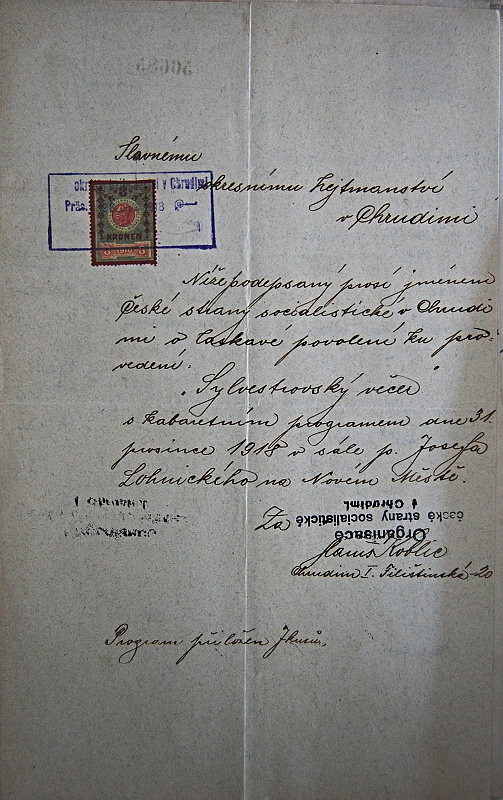 Slavnému
okresnímu hejtmanství
v Chrudimi
v Chrudimi
Präs.
KRONEN
1910
Nížepodepsaný prosí jménem
České strany socialistické v Chrudi
mi o laskavé povolení ku pro-
vedení:
„Sylvestrovský večer"
s kabaretním programem dne 31.
prosince 1918 v sále p. Josefa
Lohnického na Novém Městě.
Za
Organisace
české strany socialistické
v Chrudimi.
Hanuš Koblic
Chrudim I. Filištínská 20
Program přiložen